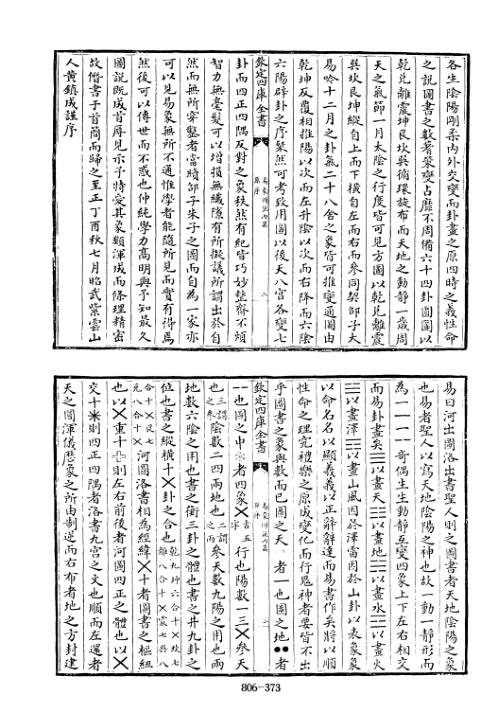 各生陰陽剛柔内外交變而卦畫之原四時之義性命
之說圖書之數蓍策變占靡不周備六十四卦圓圖以
乾兌離震坤艮坎巽循環旋布而天地之動静一歲周
天之氣節一月太陰之行度皆可見方圖以乾兌離震
巽坎艮坤縱自上而下橫自左而右而參同契邵子大
易吟十二月之卦氣二十八舍之象皆可推變通圖由
乾坤反覆相推陽以次而左升陰以次而右降而六陰
六陽辟卦之序粲然可考致用圖以後天八宫各變七
欽定四庫全書
易象圖說内篇
原序
二
卦而四正四隅反對之象秩然有紀皆巧妙整齊不煩
智力無毫髮可以增損無纎隱有所擬議所謂出於自
然而無所穿鑿者當續邵子朱子之圖而自為一家亦
可以見易象無所不通惟學者能隨所見而實有得焉
然後可以傳世而不惑也仲純學力高明與予知最久
圖說既成首辱見示予特愛其象類渾成而條理精密
故僭書于首簡而歸之至正丁酉秋七月昭武紫雲山
人黄鎮成謹序
易曰河出圖洛出書聖人則之圖書者天地陰陽之象
也易者聖人以寫天地陰陽之神也故一動一静形而
為一 奇偶生生動静互變四象上下左右相交
而易卦畫矣☰以畫天☷以畫地☵以畫水☲以畫火
☱以畫澤☶以畫山風因於澤雷因於山卦以表象象
以命名名以顯義義以正辭辭達而易書作矣將以順
性命之理究禮樂之原成變化而行鬼神者要皆不出
乎圖書之象與數而已圖之天 者一也圖之地●●者
欽定四庫全書
易象圖說内篇
原序
一
一也圖之中 者四象╳ 五行也陽數一三╳參天
也 陰數二四兩地也 參天數九陽之用也兩
地數六陰之用也書之衡三卦之體也書之井九卦之
位也書之縱橫十╳卦之合也
河圖洛書相為經緯╳十者圖書之樞紐
也以╳重十 則左右前後者河圖四正之體也以╳
交十米則四正四隅者洛書九宫之文也順而左運者
天之圓渾儀厯象之所由制逆而右布者地之方封建
806-373